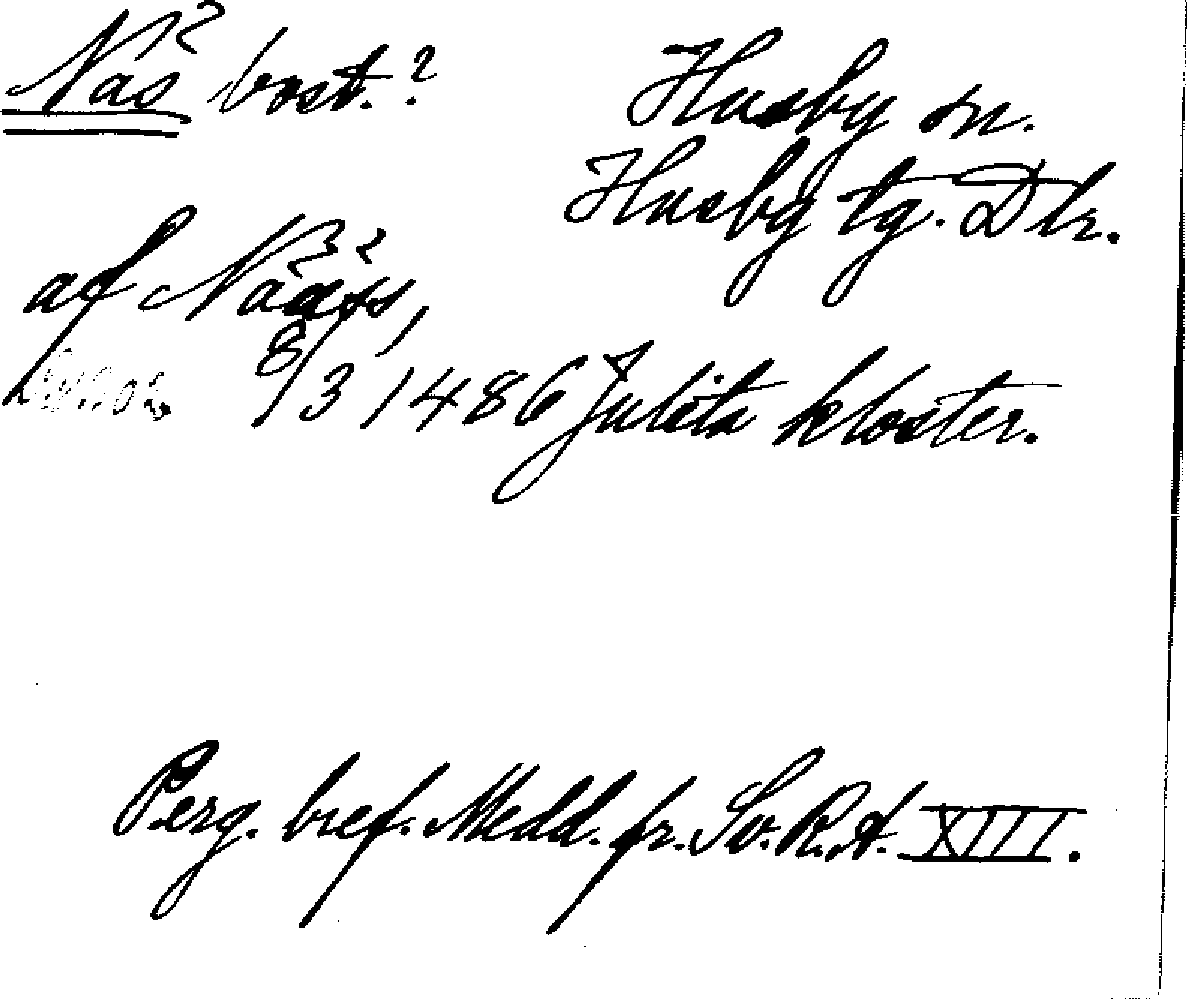 Näs bost.?
Husby sn.
Husby tg. Dlr.
af Nääss,
8/3 1486 Julita kloster.
Perg. bref. Medd. fr. Sv. R. A. XIII.